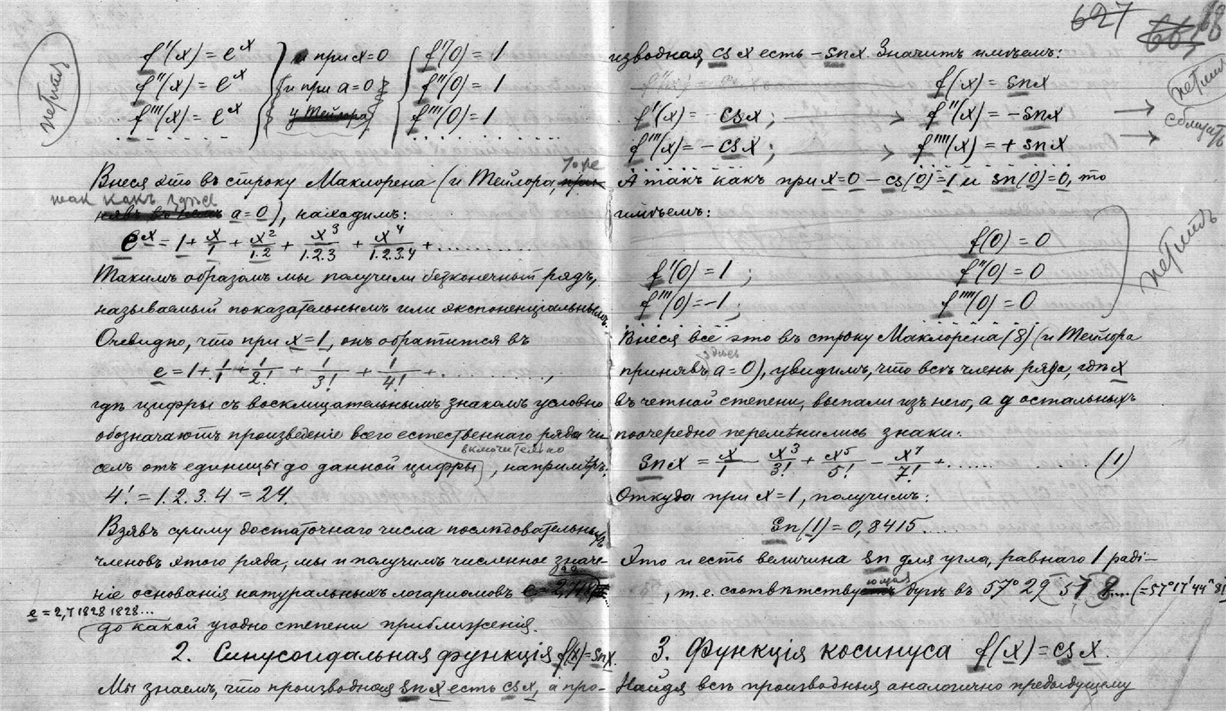 f'(x) = e^x } и при x=0 { f'(0) = 1
f''(x) = e^x } и при a=0 { f''(0) = 1
f'''(x) = e^x } у Тейлора { f'''(0) = 1
петитъ
Внеся это въ строку Маклорена (и Тейлора,
такъ какъ тоже a=0), находимъ:
e^x = 1 + x/1 + x^2/1.2 + x^3/1.2.3 + x^4/1.2.3.4 + ..........
Такимъ образомъ мы получили безконечный рядъ,
называемый показательнымъ или экспоненціальнымъ.
Очевидно, что при x=1, онъ обратится въ
e = 1 + 1/1 + 1/2! + 1/3! + 1/4! + ..........,
гдѣ цифры съ восклицательнымъ знакомъ условно
обозначаютъ произведеніе всего естественнаго ряда чи-
селъ отъ единицы до данной цифры включительно, напримѣръ:
4! = 1.2.3.4 = 24.
Взявъ сумму достаточнаго числа послѣдовательныхъ
членовъ этого ряда, мы и получимъ численное значе-
ніе основанія натуральныхъ логариѳмовъ
e = 2,71828 1828...
до какой угодно степени приближенія.
2. Синусоидальная функція f(x) = sn x.
Мы знаемъ, что производная sn x есть cs x, а про-
627
изводная cs x есть -sn x. Значитъ имѣемъ:
f(x) = sn x
f'(x) = cs x; f''(x) = -sn x
f'''(x) = -cs x; f''''(x) = + sn x
петитъ
А такъ какъ при x=0 - cs(0)=1 и sn(0)=0, то
имѣемъ:
f(0) = 0
f'(0) = 1; f''(0) = 0
f'''(0) = -1; f''''(0) = 0
петитъ
Внеся все это въ строку Маклорена (8) (и Тейлора
принявъ здѣсь a=0), увидимъ, что всѣ члены ряда, гдѣ x
въ четной степени, выпали изъ него, а у остальныхъ
поочередно перемѣнились знаки:
Sn x = x/1 - x^3/3! + x^5/5! - x^7/7! + .......... (1)
Откуда при x=1, получимъ:
Sn(1) = 0,8415.....
Это и есть величина sn для угла, равнаго 1 раді-
, т.е. соотвѣтствующая дугѣ въ 57° 29 57 8.... (=57°17'44"81
3. Функція косинуса f(x) = cs x.
Найдя всѣ производныя аналогично предыдущему